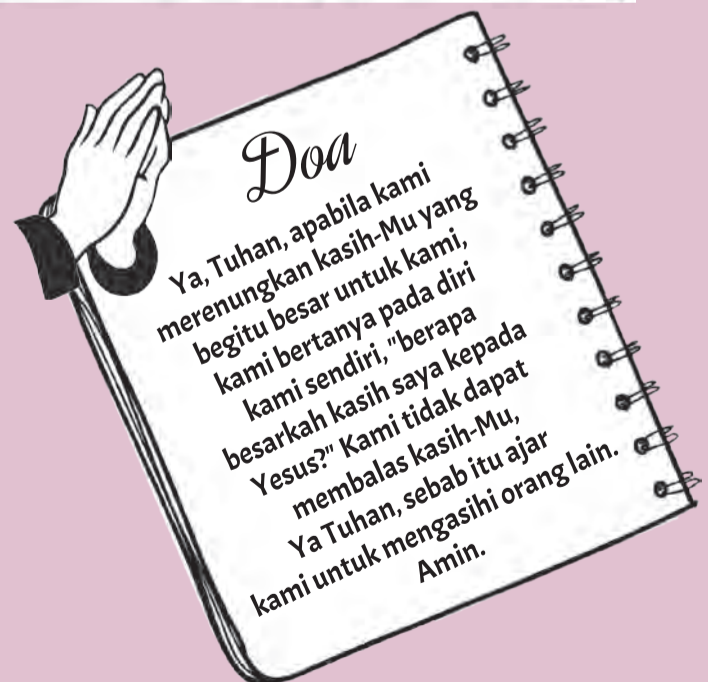 Doa
Ya, Tuhan, apabila kami
merenungkan kasih-Mu yang
begitu besar untuk kami,
kami bertanya pada diri
kami sendiri, "berapa
besarkah kasih saya kepada
Yesus?" Kami tidak dapat
membalas kasih-Mu,
Ya Tuhan, sebab itu ajar
kami untuk mengasihi orang lain.
Amin.